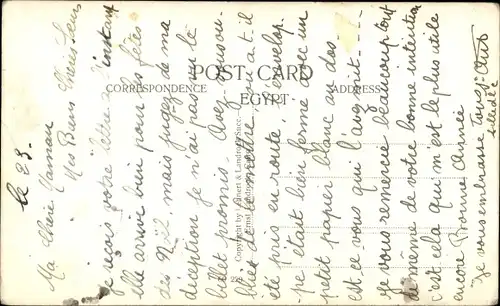 POST CARD
CORRESPONDENCE
ADDRESS
EGYPT
Copyright by Lehnert & Landrock Succ.
le 23.
Ma chère Maman
Mes Biens Chéris Leurs
Je reçois votre lettre à l'instant
elle arrive bien pour les fêtes
des N. 2. mais jugez de ma
déception je n'ai pas vu le
billet promis Avez-vous ou-
blié de le mettre, ou a-t-il
été pris en route, l'envelop-
pe était bien fermé avec un
petit papier blanc au dos
est ce vous qui l'avez mit
Je vous remercie beaucoup tout
de même de votre bonne intention
c'est cela qui m'est le plus utile
encore Bonne Année
Je vous embrasse Tous